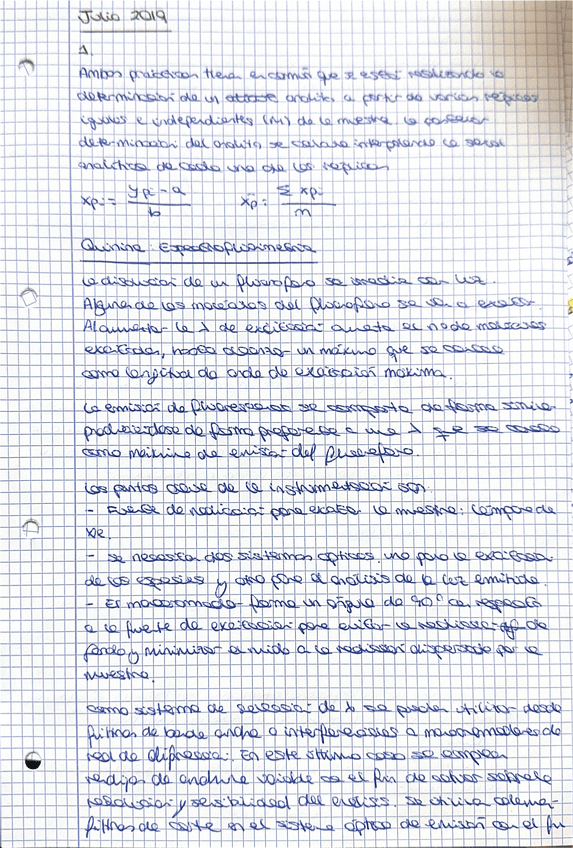 Julio 2019
1.
Ambas prácticas tienen en común que se está realizando la
determinación de un analito a partir de varias réplicas
iguales e independientes (m) de la muestra. La posterior
determinación del analito se calcula interpolando la señal
analítica de cada una de las réplicas
xpi = (ypi - a) / b    x̄p = Σ xpi / m
Quinina: Espectrofluorimetría
La disolución de un fluoróforo se irradia con luz.
Alguna de las moléculas del fluoróforo se va a excitar.
Al aumentar la λ de excitación aumenta el nº de moléculas
excitadas, hasta alcanzar un máximo que se conoce
como longitud de onda de excitación máxima.
La emisión de fluorescencia se comporta de forma similar
produciéndose de forma preferente a una λ que se conoce
como máximo de emisión del fluoróforo.
Los puntos clave de la instrumentación son:
- Fuente de radiación para excitar la muestra: lámpara de
Xe.
- Se necesitan dos sistemas ópticos, uno para la excitación
de las especies y otro para el análisis de la luz emitida.
- El monocromador forma un ángulo de 90° con respecto
a la fuente de excitación para evitar la radiación de
fondo y minimizar el ruido a la radiación dispersada por la
muestra.
Como sistema de selección de λ se pueden utilizar desde
filtros de banda ancha o interferenciales a monocromadores de
red de difracción. En este último caso se emplean
rendijas de anchura variable con el fin de actuar sobre la
resolución y sensibilidad del análisis. Se utiliza además
filtros de corte en el sistema óptico de emisión con el fin